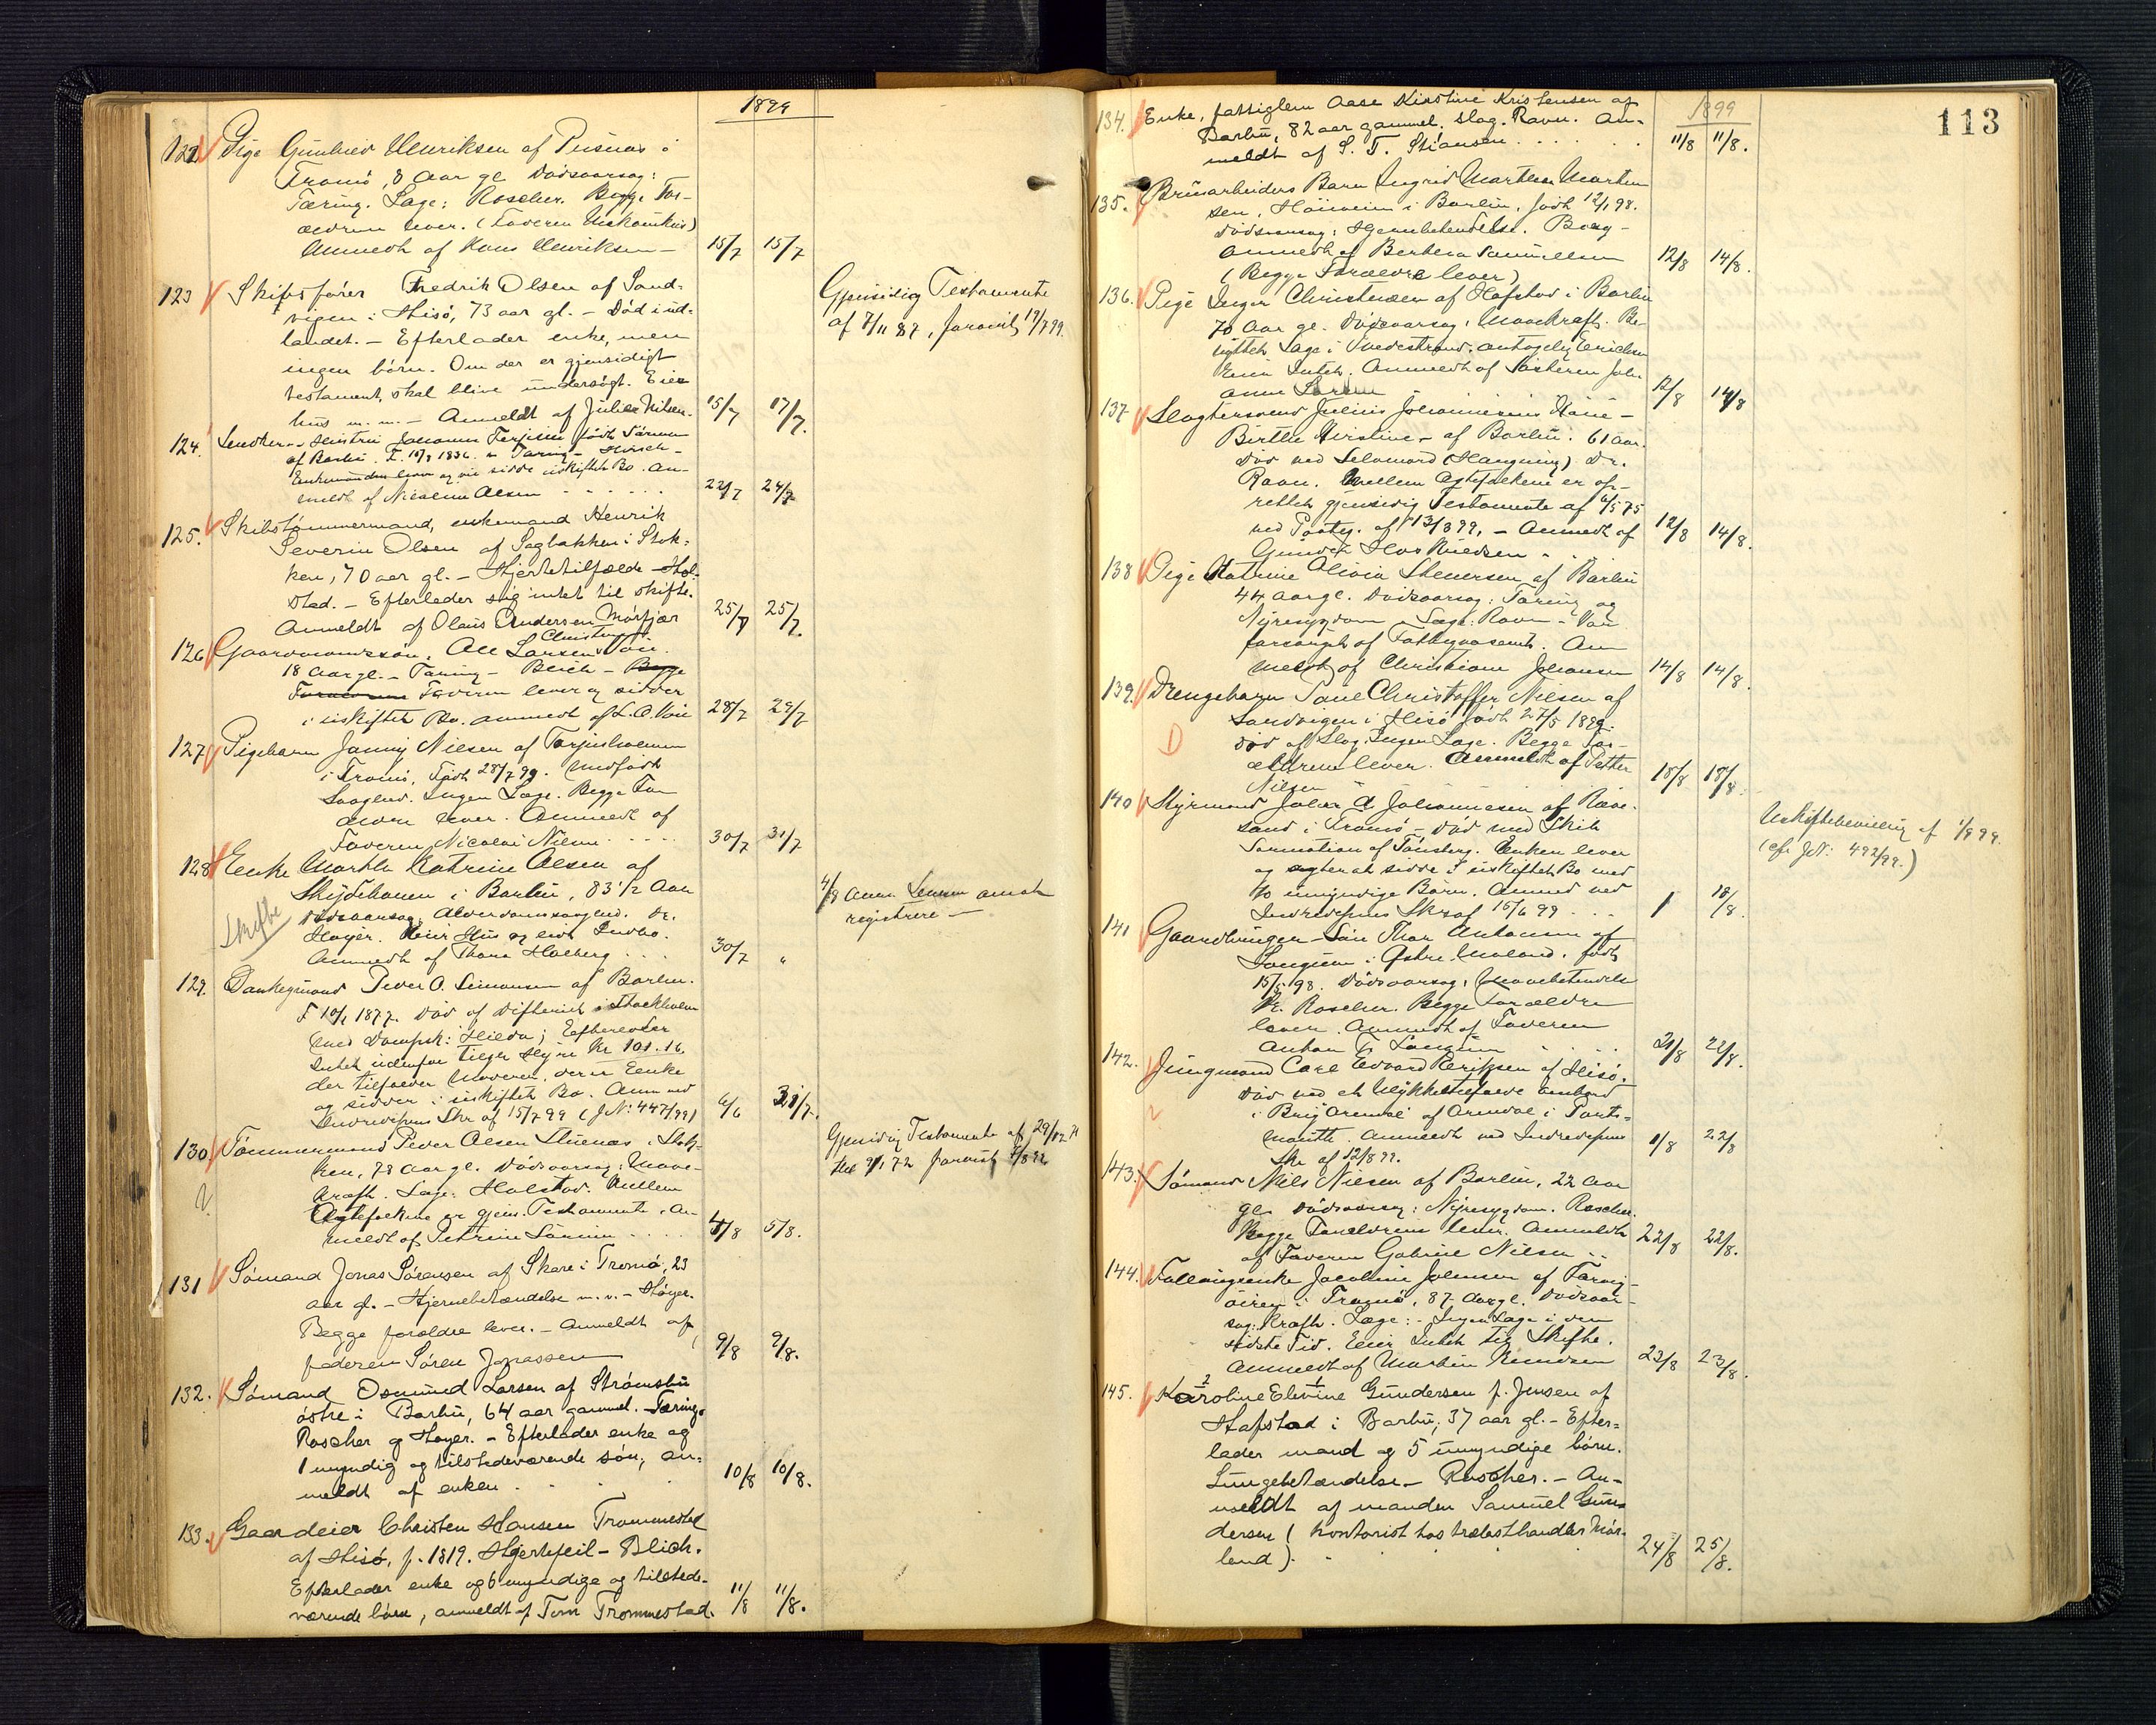 1899
122 Pige Gunhild Henriksen af Pusnes i
Tromö, 8 Aar gl Dödsaarsag:
Tæring. Læge: Roscher. Begge For-
ældrene lever. (Faderen
Anmeldt af Hans Henriksen — 15/7 15/7
123 Skibsfører Fredrik Olsen af Sand-
vigen i Hisö, 73 aar gl. – Död i ud-
landet. – Efterlader enke, men
ingen börn. Om der er gjensidigt
testament, skal blive undersögt. Eier
hus m. m. – Anmeldt af Julie Nilsen. 15/7 17/7.
Gjensidig Testamente
af 7/11 87, 17/7 99.
124. Hustru Johanne Terjesen född
af Barbu. F. 1836. Tæring –
Enkemanden lever og vil sidde i uskiftet Bo. An-
meldt af Nicoline Olsen . . . . . 22/7 24/7
125. Skibstömmermand, enkemand Henrik
Severin Olsen af Sagbakken i Stok-
ken, 70 aar gl. – Hjertetilfælde – Hol-
stad. – Efterlader sig intet til skifte.
Anmeldt af Olaus Andersen Mörfjær 25/7 25/7.
126 Gaardmandssön, Ole Larsen Christian
18 Aar gl. – Tæring – Blich – Begge
Forældrene Faderen lever og sidder
i uskiftet Bo. anmeldt af L. O. 28/7 29/7
127 Pigebarn Jenny Nielsen af Torjusholmen
i Tromö, Födt 28/7 99. Medfödt
Svaghed. Ingen Læge. Begge For
ældre lever. Anmeldt af
Faderen Nicolai Nilsen . . . . 30/7 31/7
128 Enke Marthe Katrine Olsen af
Skydebanen i Barbu, 83 1/2 Aar
Dödsaarsag: Alderdomssvaghed. Dr.
Høyer. Eier Hus og lidt Indbo.
Anmeldt af Thora Holberg . . . 30/7 "
Skifte
4/8 anm. Lensm. anmodet
registrere –
129. Dæksgmand Peder O. Simonsen af Barbu.
F 10/1 1877. död af Difterit i Stockholm
med Dampsk: Hilda; Efterlader
Intet udenfor tilgode Hyre Kr 101.16,
der tilfalder Moderen, der er Enke
og sidder i uskiftet Bo. Anm ved
Indredepins Skr af 15/7 99 (J№: 447/99) 6/6 31/7.
130. Tömmermand Peder Olsen Stuenes i Stok-
ken, 78 Aar gl. Dödsaarsag: Mave-
kræft. Læge: Holstad. Mellem
Ægtefolkene er gjens. Testamente. An-
meldt af Petrine 4/8 5/8.
Gjensidig Testamente af 29/12 71
thl 9/1 72 8/8 99
131 Sömand Jonas Sörensen af Skare i Tromö, 23
aar gl. – Hjernebetændelse m. v. – Höyer.
Begge forældre lever. – Anmeldt af
faderen Sören Jonassen 9/8 9/8.
132. Sömand Osmund Larsen af Strömsbu
östre i Barbu, 64 aar gammel. – Tæring.
Roscher og Höyer. – Efterlader enke og
1 myndig og tilstedeværende sön, an-
meldt af enken . . . 10/8 10/8.
133. Gaardeier Christen Hansen Trommestad
af Hisö, f. 1819. Hjertefeil – Blich.
Efterlader enke og 6 myndige og tilstede-
værende börn, anmeldt af Tom Trommestad. 11/8 11/8.
113
1899
134. Enke, fattiglem Aase Kirstine Kristensen af
Barbu, 82 aar gammel. slag. Ravn. An-
meldt af S. T. Stiansen . . . . . . 11/8 11/8.
135. Brusarbeiders Barn Ingrid Marthea Morten
sen, i Barbu, födt 12/1 98.
Dödsaarsag: Hjernebetændelse.
Anmeldt af Berthea Samuelsen 12/8 14/8.
(Begge Forældre lever)
136. Pige Inger Christensen af Hafstad i Barbu
70 Aar gl. Dödsaarsag, Mavekræft. Be-
nyttet Læge i Tvedestrand; antagelig Erichsen
Eier Intet. Anmeldt af Söstren Joh-
anne Larsen 12/8 14/8
137 Slagtersvend Julius Johannesens Kone –
Birthe Kirstine – af Barbu. 61 aar.
död ved Selvmord (Hængning) Dr.
Ravn. Mellem Ægtefolkene er op-
rettet gjensidig Testamente af 6/5 75
ved Paateg. af 13/3 99, – Anmeldt af
Gunda Knudsen . . . 12/8 14/8.
138 Pige Katrine Olivia Stenersen af Barbu
44 aar gl. Dödsaarsag: Tæring og
Nyresygdom – Læge: Ravn. – Var
forsörget af Fattigvæsenet. An
meldt af Christiane Johansen 14/8 14/8.
139. Drengebarn Paul Christoffer Nielsen af
Sandvigen i Hisö födt 27/5 1899.
död af Slag. Ingen Læge. Begge For-
ældrene lever. Anmeldt af Petter
Nilsen 18/8 18/8.
D
140 Styrmand Johan A Johannesen af Ræve-
sand i Tromö – död med Skib
af Tönsberg. Enken lever
og agter at sidde i uskiftet Bo med
to umyndige Börn. Anmeld ved
Indredepins Skr af 15/6 99 . . . 18/8.
Uskiftebevilling af 1/9 99.
(cfr J№: 492/99.)
141 Gaardbruger – Sön Thor Antonsen af
Longum i Östre Moland. födt
15/5 98. Dödsaarsag: Mavebetændelse
Dr. Roscher. Begge Forældre
lever. Anmeldt af Faderen
Anton T. Longum . . . . 21/8 22/8.
142. Jungmand Carl Edvard Eriksen af Hisö.
Död ved et Ulykkestilfælde ombord
i Brig Arendal af Arendal i Ports-
mouth. Anmeldt ved Indredepins
Skr af 12/8 99. 1/8 22/8
143. Sömand Nils Nielsen af Barbu, 22 Aar
gl. Dödsaarsag: Nyresygdom. Roscher.
Begge Forældrene lever. Anmeldt
af Faderen Gabriel Nilsen . . 22/8 22/8.
144. Fattigenke Jacobine Johnsen af Færvig-
öiren i Tromö, 87 Aar gl. Dödsaar-
sag: Kræft. Læge: – Ingen Læge i den
sidste Tid. Eier Intet til Skifte.
Anmeldt af Martin Knudsen 23/8 23/8.
145. Karoline Elevine Gundersen f. Jensen af
Hafstad i Barbu, 37 aar gl. – Efter-
lader mand og 5 umyndige börn.
Lungebetændelse – Roscher. – An-
meldt af manden Samuel Gun-
dersen (kontorist hos trælasthandler Mör-
land). . . . . 24/8 25/8.